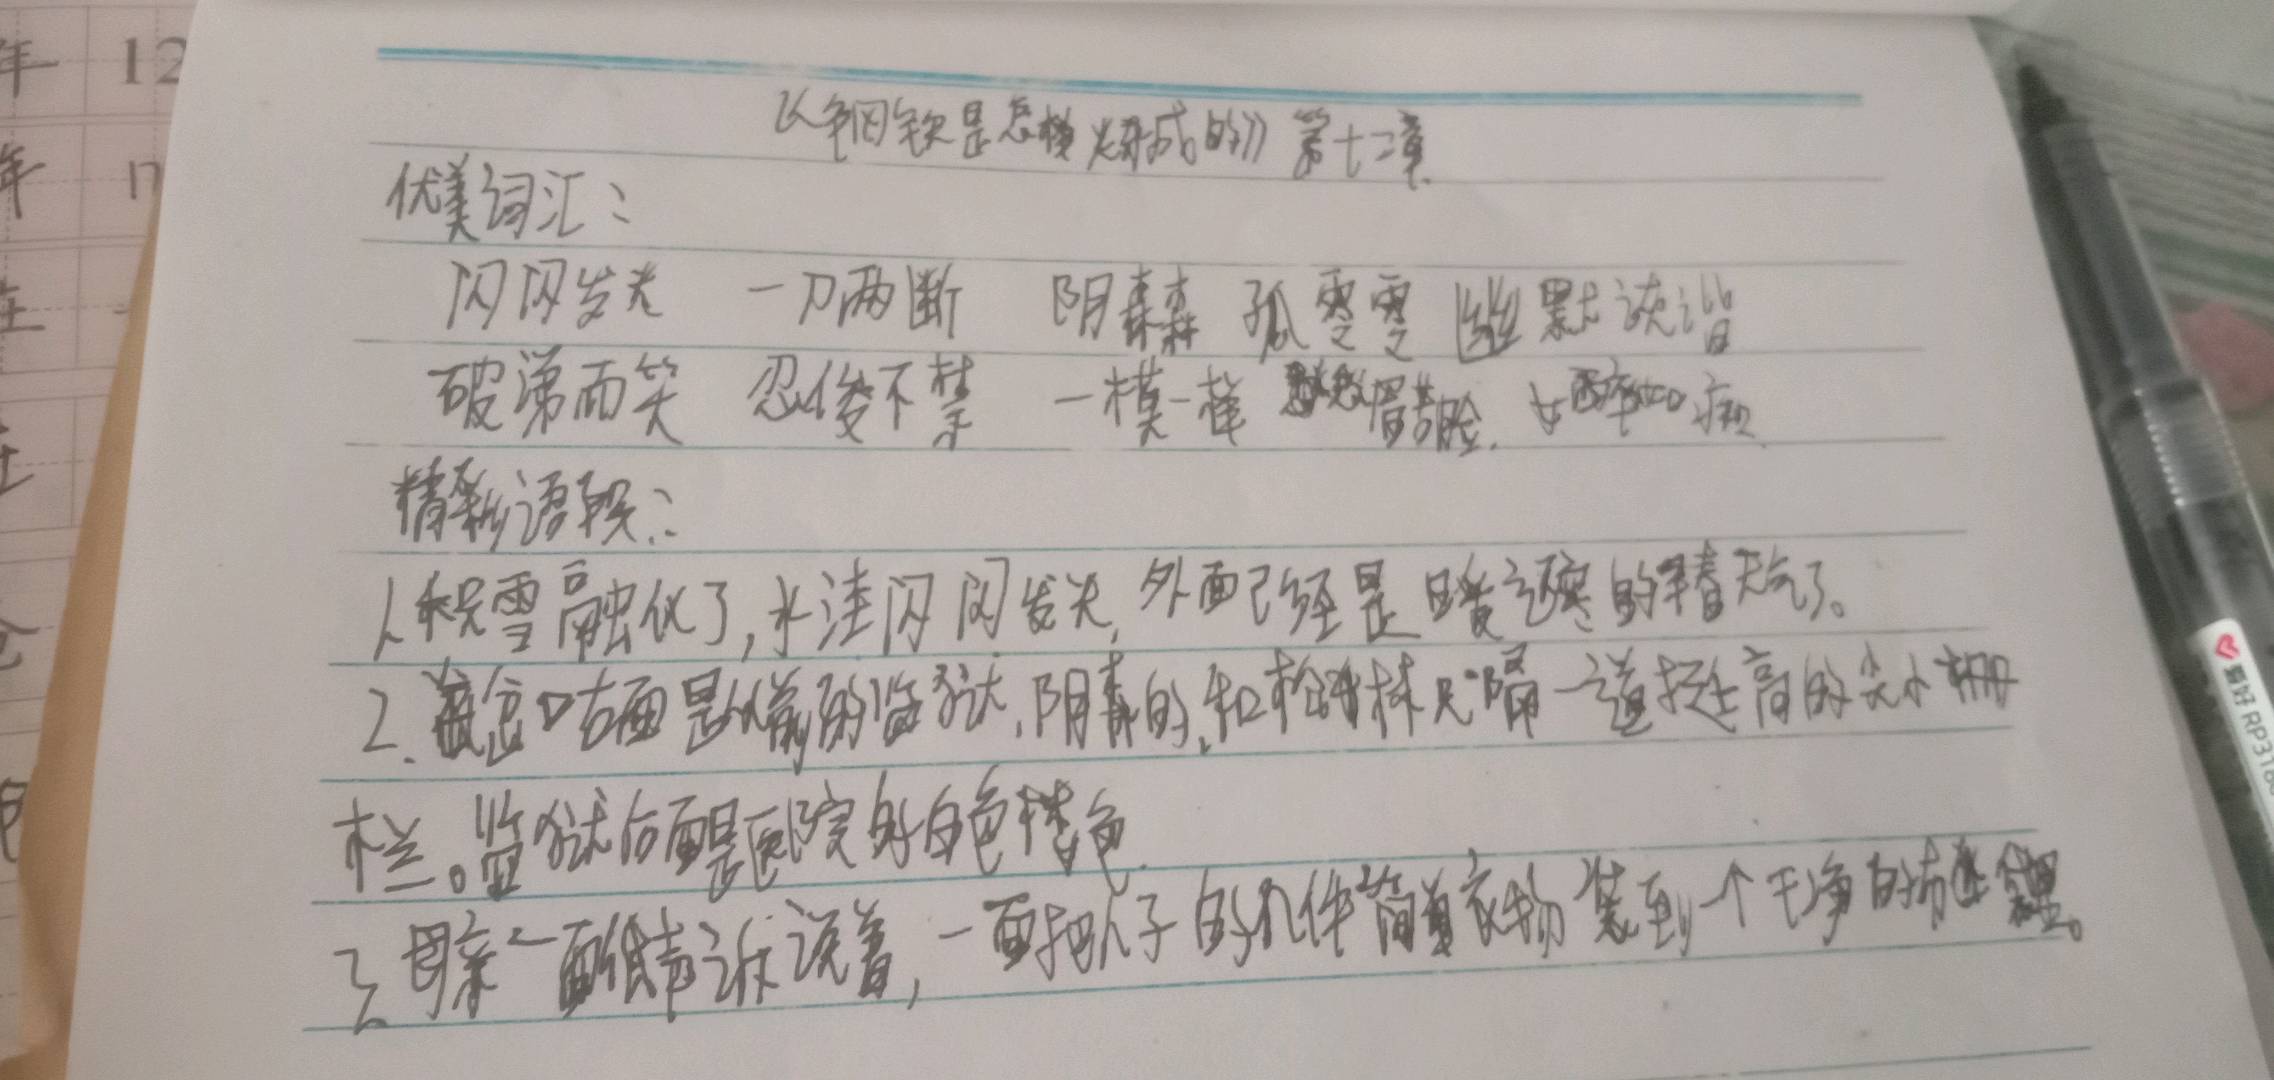 《钢铁是怎样炼成的》第十二章
优美词汇：
闪闪发光 一刀两断 阴森森 孤零零 幽默诙谐
破涕而笑 忍俊不禁 一模一样 愁眉苦脸. 如醉如痴
精彩语段：
1、积雪融化了,水洼闪闪发光,外面已经是暖还寒的早春天气了。
2. 岔口右面是从前的监狱,阴森的,和松林只隔一道挺高的尖木栅
栏。监狱后面是医院的白色楼色.
3. 母亲一面低声诉说着,一面把儿子的几件简单衣物装到一个干净的布里。
爱好 RP318
年 12
年